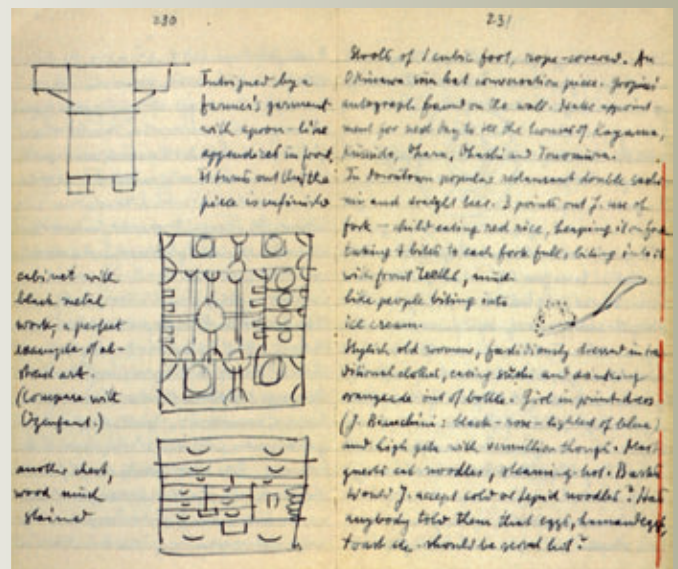 230
Intrigued by a
farmer's garment
with apron-like
appendices in front.
It turns out that the
piece is unfinished
cabinet with
black metal
work, a perfect
example of ab-
stract art.
(Compare with
Ozenfant.)
another chest,
wood much
stained
231
Stools of 1 cubic foot, rope-covered. An
Okinawa rain hat conversation piece.
autograph found on the wall. Make appoint-
ment for next day to see the houses of Kagawa,
Ohara, Ohashi and Tonomura.
In downtown popular restaurant double sashi-
mi and draught beer. B points out J. use of
fork – child eating red rice, heaping it on fork
taking 4 bites to each fork full, biting into it
with front teeth, much
like people biting into
ice cream.
Stylish old woman, fastidiously dressed in tra-
ditional clothes, eating sushi and drinking
orangeade out of bottle. Girl in print dress
(J. Bianchini: black - rose - lightest of blue)
and high geta with vermillion thongs. Most
guests eat noodles, steaming hot.
Would J. accept cold or tepid noodles? Has
anybody told them that eggs, ham and eggs,
toast etc. should be served hot?